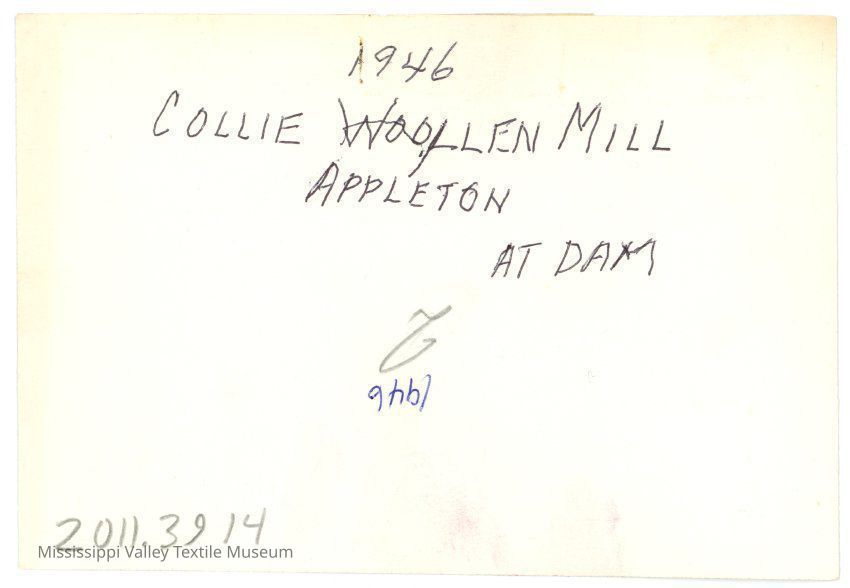 1946
COLLIE WOOLLEN MILL
APPLETON
AT DAM
2
1946
2011.39.14
Mississippi Valley Textile Museum